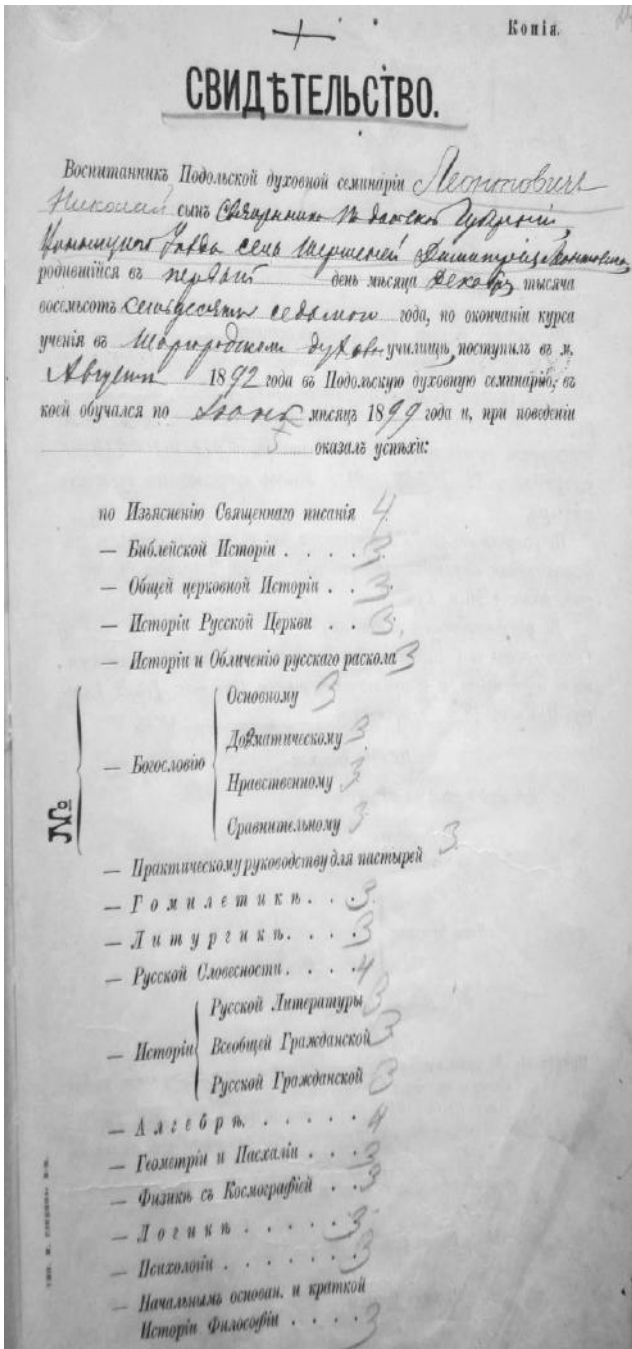 Копія.
СВИДѢТЕЛЬСТВО.
Воспитанникъ Подольской духовной семинаріи Леонтовичъ
Николай сынъ Священника Подольской Губерніи,
Уѣзда села Шершеней Димитрія Леонтовича,
родившійся въ первый день мѣсяца Декабря тысяча
восемьсотъ семьдесятъ седьмого года, по окончаніи курса
ученія въ Шаргородскомъ духовн. училищѣ, поступилъ въ м.
Августѣ 1892 года въ Подольскую духовную семинарію, въ
коей обучался по Іюнь мѣсяцъ 1899 года и, при поведеніи
5 оказалъ успѣхи:
по Изъясненію Священнаго писанія 4
— Библейской Исторіи . . . . 3
— Общей церковной Исторіи . . 3
— Исторіи Русской Церкви . . 3
— Исторіи и Обличенію русскаго раскола 3
№
— Богословію
Основному 3
Догматическому 3
Нравственному 3
Сравнительному 3
— Практическому руководству для пастырей 3
— Гомилетикѣ. . . 3
— Литургикѣ. . . . 3
— Русской Словесности. . . . 4
— Исторіи
Русской Литературы 3
Всеобщей Гражданской 3
Русской Гражданской 3
— Алгебрѣ. . . . . . 4
— Геометріи и Пасхаліи . . . 3
— Физикѣ съ Космографіей . . 3
— Логикѣ . . . . . 3
— Психологіи . . . . . . . 3
— Начальнымъ основан. и краткой
Исторіи Философіи . . . . 3